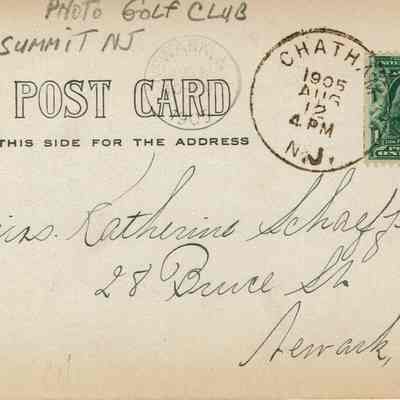 PHOTO GOLF CLUB
SUMMIT NJ
POST CARD
THIS SIDE FOR THE ADDRESS
CHATHA
1905
AUG
12
4 PM
N.J.
Katherine
28 Bruce St.
Newark,